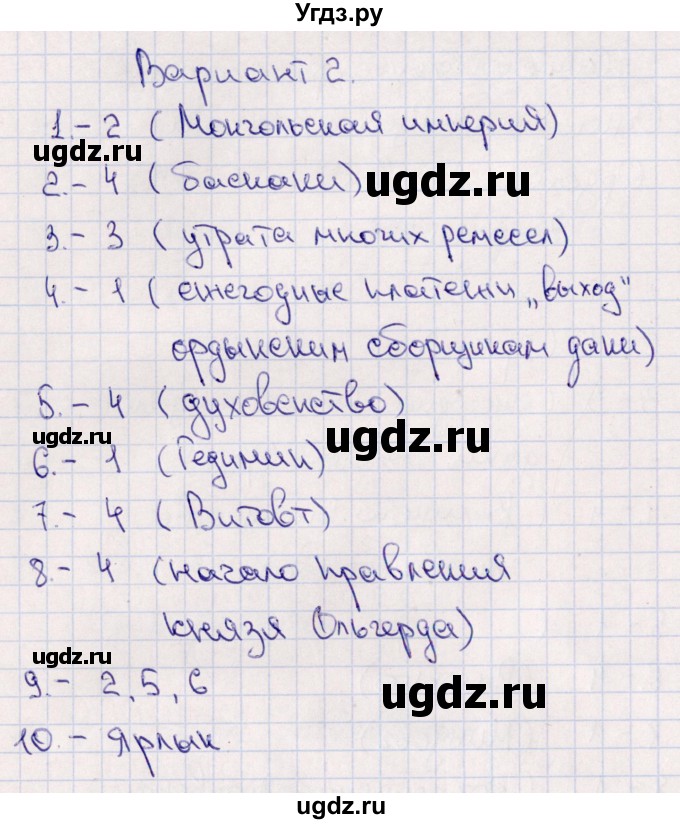 Угдз.ру
Вариант 2.
1.- 2 (Монгольская империя)
ugdz.ru
2.- 4 (баскаки)
ugdz.ru
3.- 3 (утрата многих ремесел)
4.- 1 (ежегодные платежи „выход"
ордынским сборщикам дани)
5.- 4 (духовенство)
ugdz.ru
ugdz.ru
6.- 1 (Гедимин)
7.- 4 (Витовт)
8.- 4 (начало правления
князя Ольгерда)
ugdz.ru
9.- 2, 5, 6
ugdz.ru
10.- Ярлык.
ugdz.ru